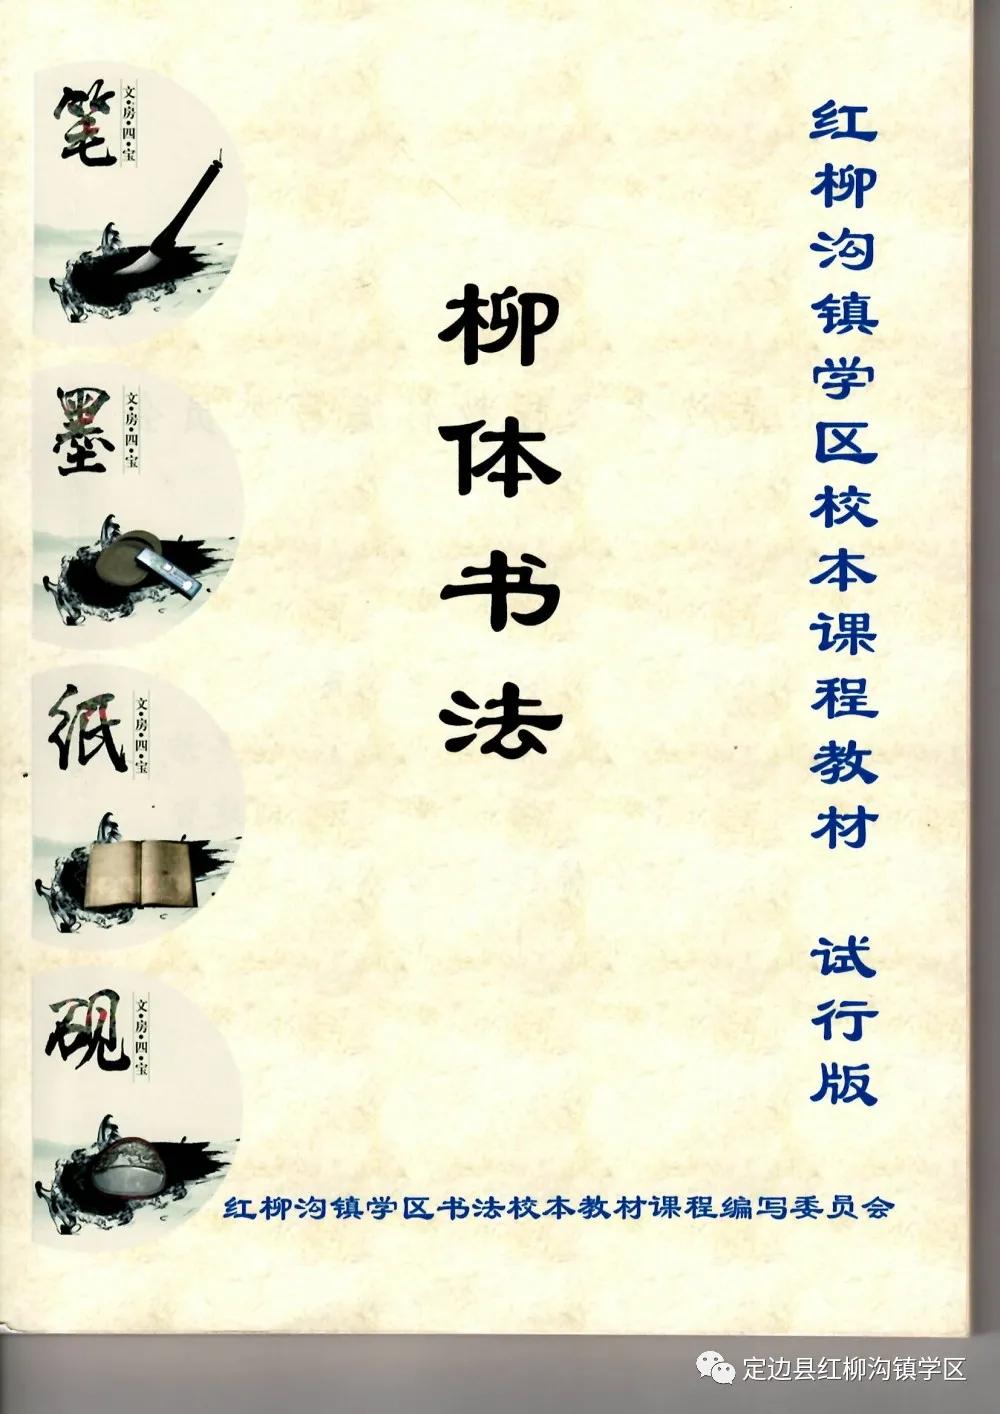 红柳沟镇学区校本课程教材 试行版
柳体书法
笔
文·房·四·宝
墨
文·房·四·宝
纸
文·房·四·宝
砚
文·房·四·宝
红柳沟镇学区书法校本教材课程编写委员会
定边县红柳沟镇学区